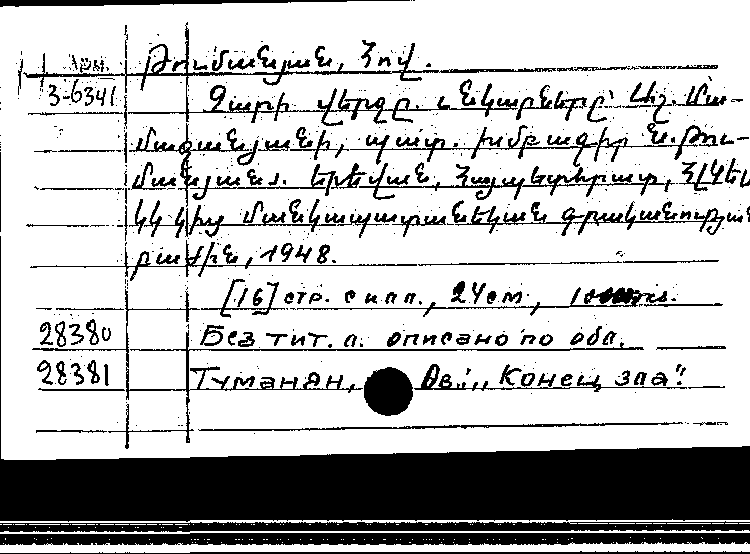 Арм. Թումանյան, Հով.
3-6341 Չարի վերջը. Նկարները՝ Աշ. Մա-
մաջանյանի, պատ. խմբագիր Ն. Թու-
մանյան. Երեվան, Հայպետհրատ,
կից մանկապատանեկան գրականության
բաժին, 1948.
[16] стр. с илл., 24 см,
28380 Без тит. л. описано по обл.
28381 Туманян, Ов.: „Конец зла“.